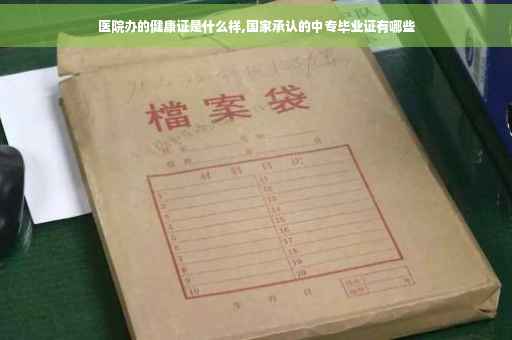 医院办的健康证是什么样,国家承认的中专毕业证有哪些
檔案袋
材料目次
1 11
2 12
3 13
4 14
5 15
6 16
7 17
8 18
9 19
10 20
年 月 日